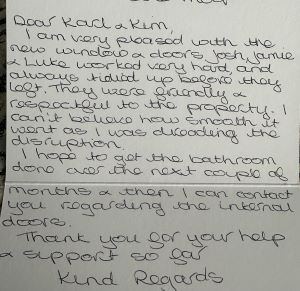 Dear Karl & Kim,
I am very pleased with the
new window & doors. Josh, Jamie
& Luke worked very hard, and
always tidied up before they
left. They were friendly &
respectful to the property. I
can't believe how smoothly it
went as I was dreading the
disruption.
I hope to get the bathroom
done over the next couple of
months & then I can contact
you regarding the internal
doors.
Thank you for your help
& support so far
Kind Regards